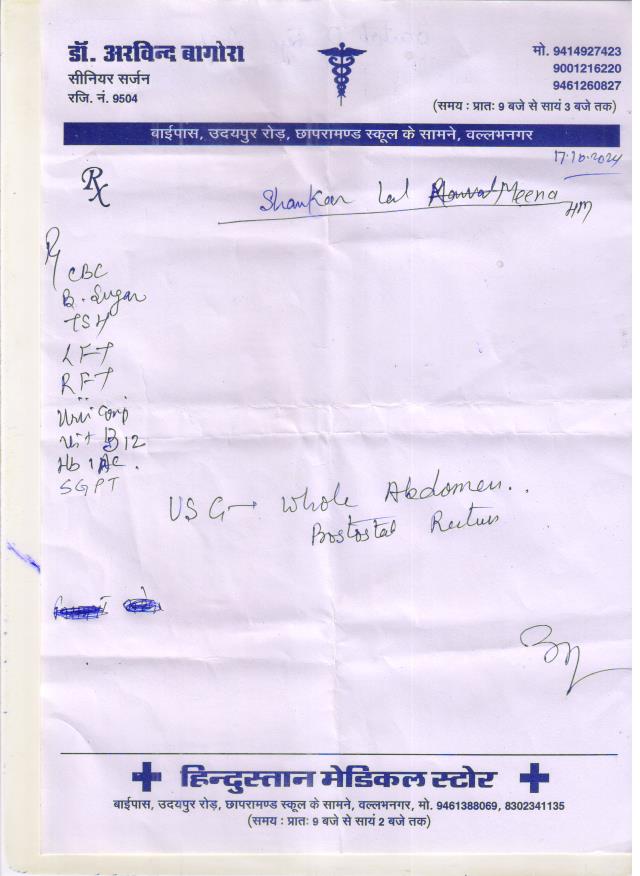 डॉ. अरविन्द बागोरा
सीनियर सर्जन
रजि. नं. 9504
मो. 9414927423
9001216220
9461260827
(समय : प्रातः 9 बजे से सायं 3 बजे तक)
बाईपास, उदयपुर रोड़, छापरामण्ड स्कूल के सामने, वल्लभनगर
17.10.2024
Rx
Shankar Lal Meena
HM
Rx
CBC
B. Sugar
TSH
LFT
RFT
Uri Comp
Vit B12
Hb1Ac.
SGPT
USG → Whole Abdomen..
हिन्दुस्तान मेडिकल स्टोर
बाईपास, उदयपुर रोड़, छापरामण्ड स्कूल के सामने, वल्लभनगर, मो. 9461388069, 8302341135
(समय : प्रातः 9 बजे से सायं 2 बजे तक)